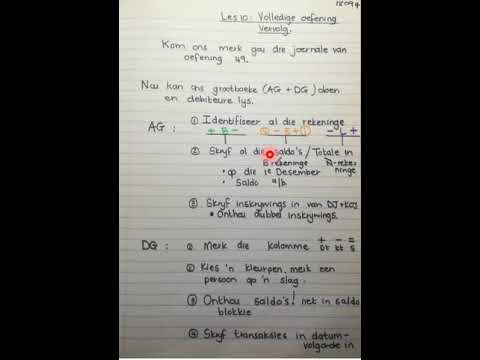 Les 10: Volledige oefening
Vervolg.
Kom ons merk gou die joernale van
oefening 49.
Nou kan ons grootboeke (AG + DG) doen
en debiteure lys.
AG: ① Identifiseer al die rekeninge
+ B - E + - L +
② Skryf al die saldo's / Totale in
B rekeninge N-reke-
ninge
• op die 1e Desember
• Saldo a/b
③ Skryf inskrywings in van DJ + KOJ
• Onthou dubbel inskrywings.
DG: ① Merk die kolomme + - =
Dt kt S
② Kies 'n kleurpen, merk een
persoon op 'n slag.
③ Onthou saldo's! net in saldo
blokkie
④ Skryf transaksies in datum-
volgorde in